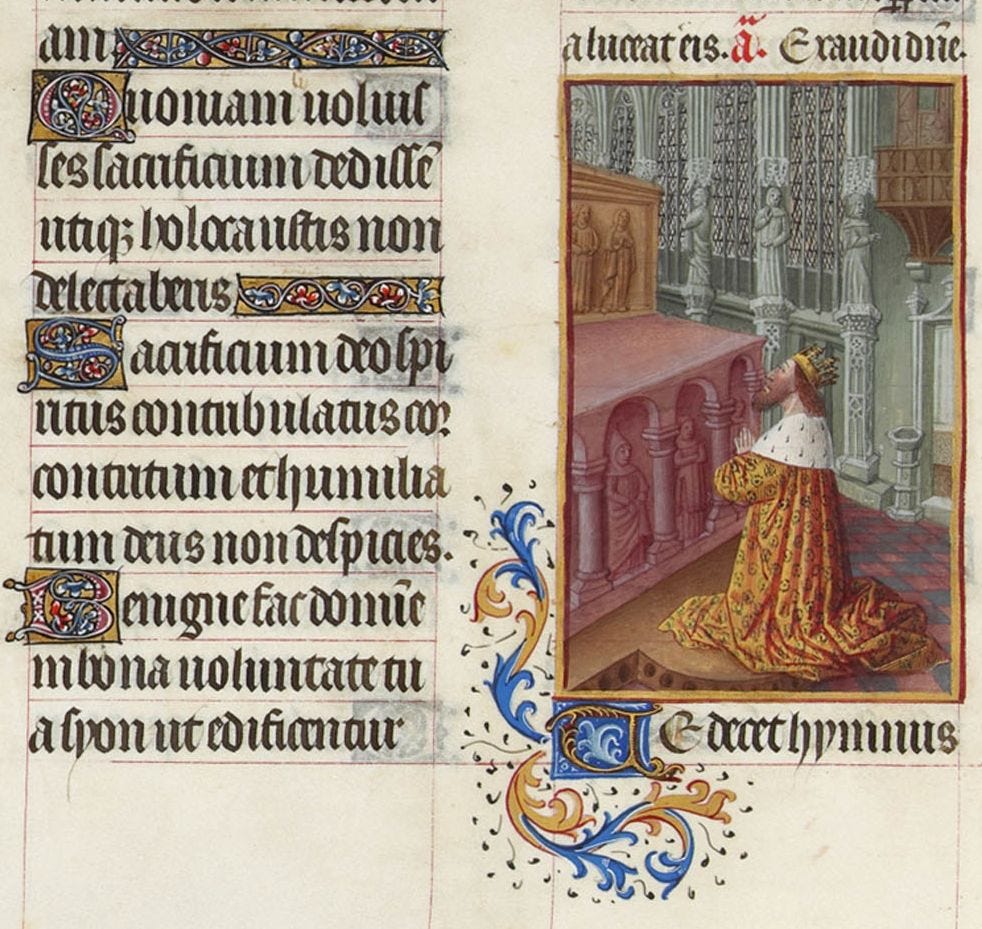 am.
Quoniam uoluis
ses sacrificium dedissē
utiqꝫ holocaustis non
delectaberis
Sacrificium deo spi
ritus contribulatus cor
contritum et humilia
tum deus non despicies.
Benigne fac domīe
in bona uoluntate tu
a syon ut edificentur
a luceat eis. a͞. Exaudi dn̄e.
TE decet hymnus